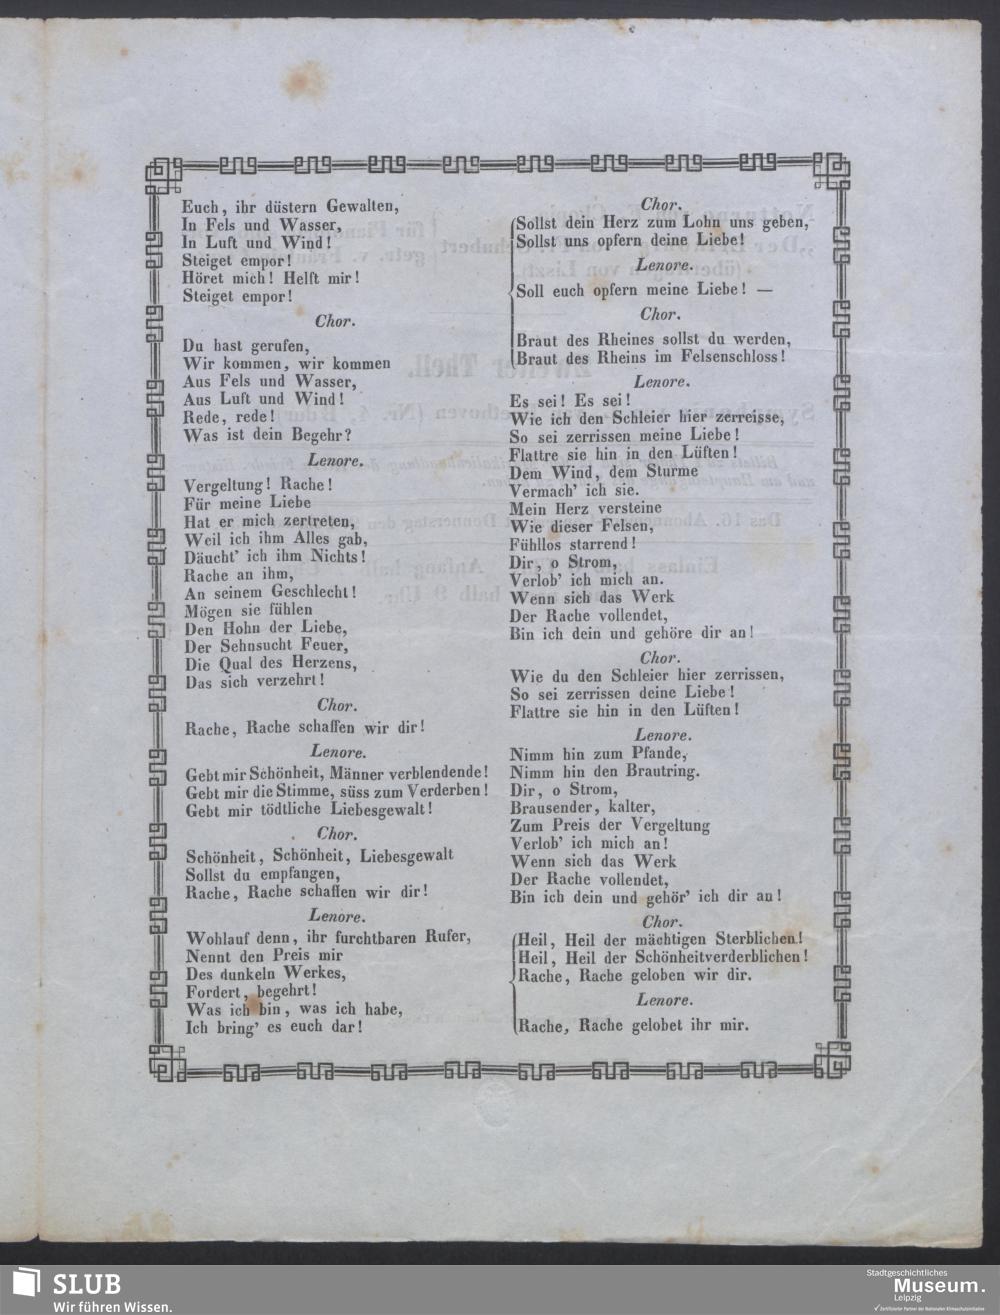 Euch, ihr düstern Gewalten,
In Fels und Wasser,
In Luft und Wind!
Steiget empor!
Höret mich! Helft mir!
Steiget empor!
Chor.
Du hast gerufen,
Wir kommen, wir kommen
Aus Fels und Wasser,
Aus Luft und Wind!
Rede, rede!
Was ist dein Begehr?
Lenore.
Vergeltung! Rache!
Für meine Liebe
Hat er mich zertreten,
Weil ich ihm Alles gab,
Däucht' ich ihm Nichts!
Rache an ihm,
An seinem Geschlecht!
Mögen sie fühlen
Den Hohn der Liebe,
Der Sehnsucht Feuer,
Die Qual des Herzens,
Das sich verzehrt!
Chor.
Rache, Rache schaffen wir dir!
Lenore.
Gebt mir Schönheit, Männer verblendende!
Gebt mir die Stimme, süss zum Verderben!
Gebt mir tödtliche Liebesgewalt!
Chor.
Schönheit, Schönheit, Liebesgewalt
Sollst du empfangen,
Rache, Rache schaffen wir dir!
Lenore.
Wohlauf denn, ihr furchtbaren Rufer,
Nennt den Preis mir
Des dunkeln Werkes,
Fordert, begehrt!
Was ich bin, was ich habe,
Ich bring' es euch dar!
Chor.
Sollst dein Herz zum Lohn uns geben,
Sollst uns opfern deine Liebe!
Lenore.
Soll euch opfern meine Liebe! —
Chor.
Braut des Rheines sollst du werden,
Braut des Rheins im Felsenschloss!
Lenore.
Es sei! Es sei!
Wie ich den Schleier hier zerreisse,
So sei zerrissen meine Liebe!
Flattre sie hin in den Lüften!
Dem Wind, dem Sturme
Vermach' ich sie.
Mein Herz versteine
Wie dieser Felsen,
Fühllos starrend!
Dir, o Strom,
Verlob' ich mich an.
Wenn sich das Werk
Der Rache vollendet,
Bin ich dein und gehöre dir an!
Chor.
Wie du den Schleier hier zerrissen,
So sei zerrissen deine Liebe!
Flattre sie hin in den Lüften!
Lenore.
Nimm hin zum Pfande,
Nimm hin den Brautring.
Dir, o Strom,
Brausender, kalter,
Zum Preis der Vergeltung
Verlob' ich mich an!
Wenn sich das Werk
Der Rache vollendet,
Bin ich dein und gehör' ich dir an!
Chor.
Heil, Heil der mächtigen Sterblichen!
Heil, Heil der Schönheitverderblichen!
Rache, Rache geloben wir dir.
Lenore.
Rache, Rache gelobet ihr mir.
SLUB
Wir führen Wissen.
Stadtgeschichtliches
Museum.
Leipzig
Zertifizierter Partner der Nationalen Klimaschutzinitiative